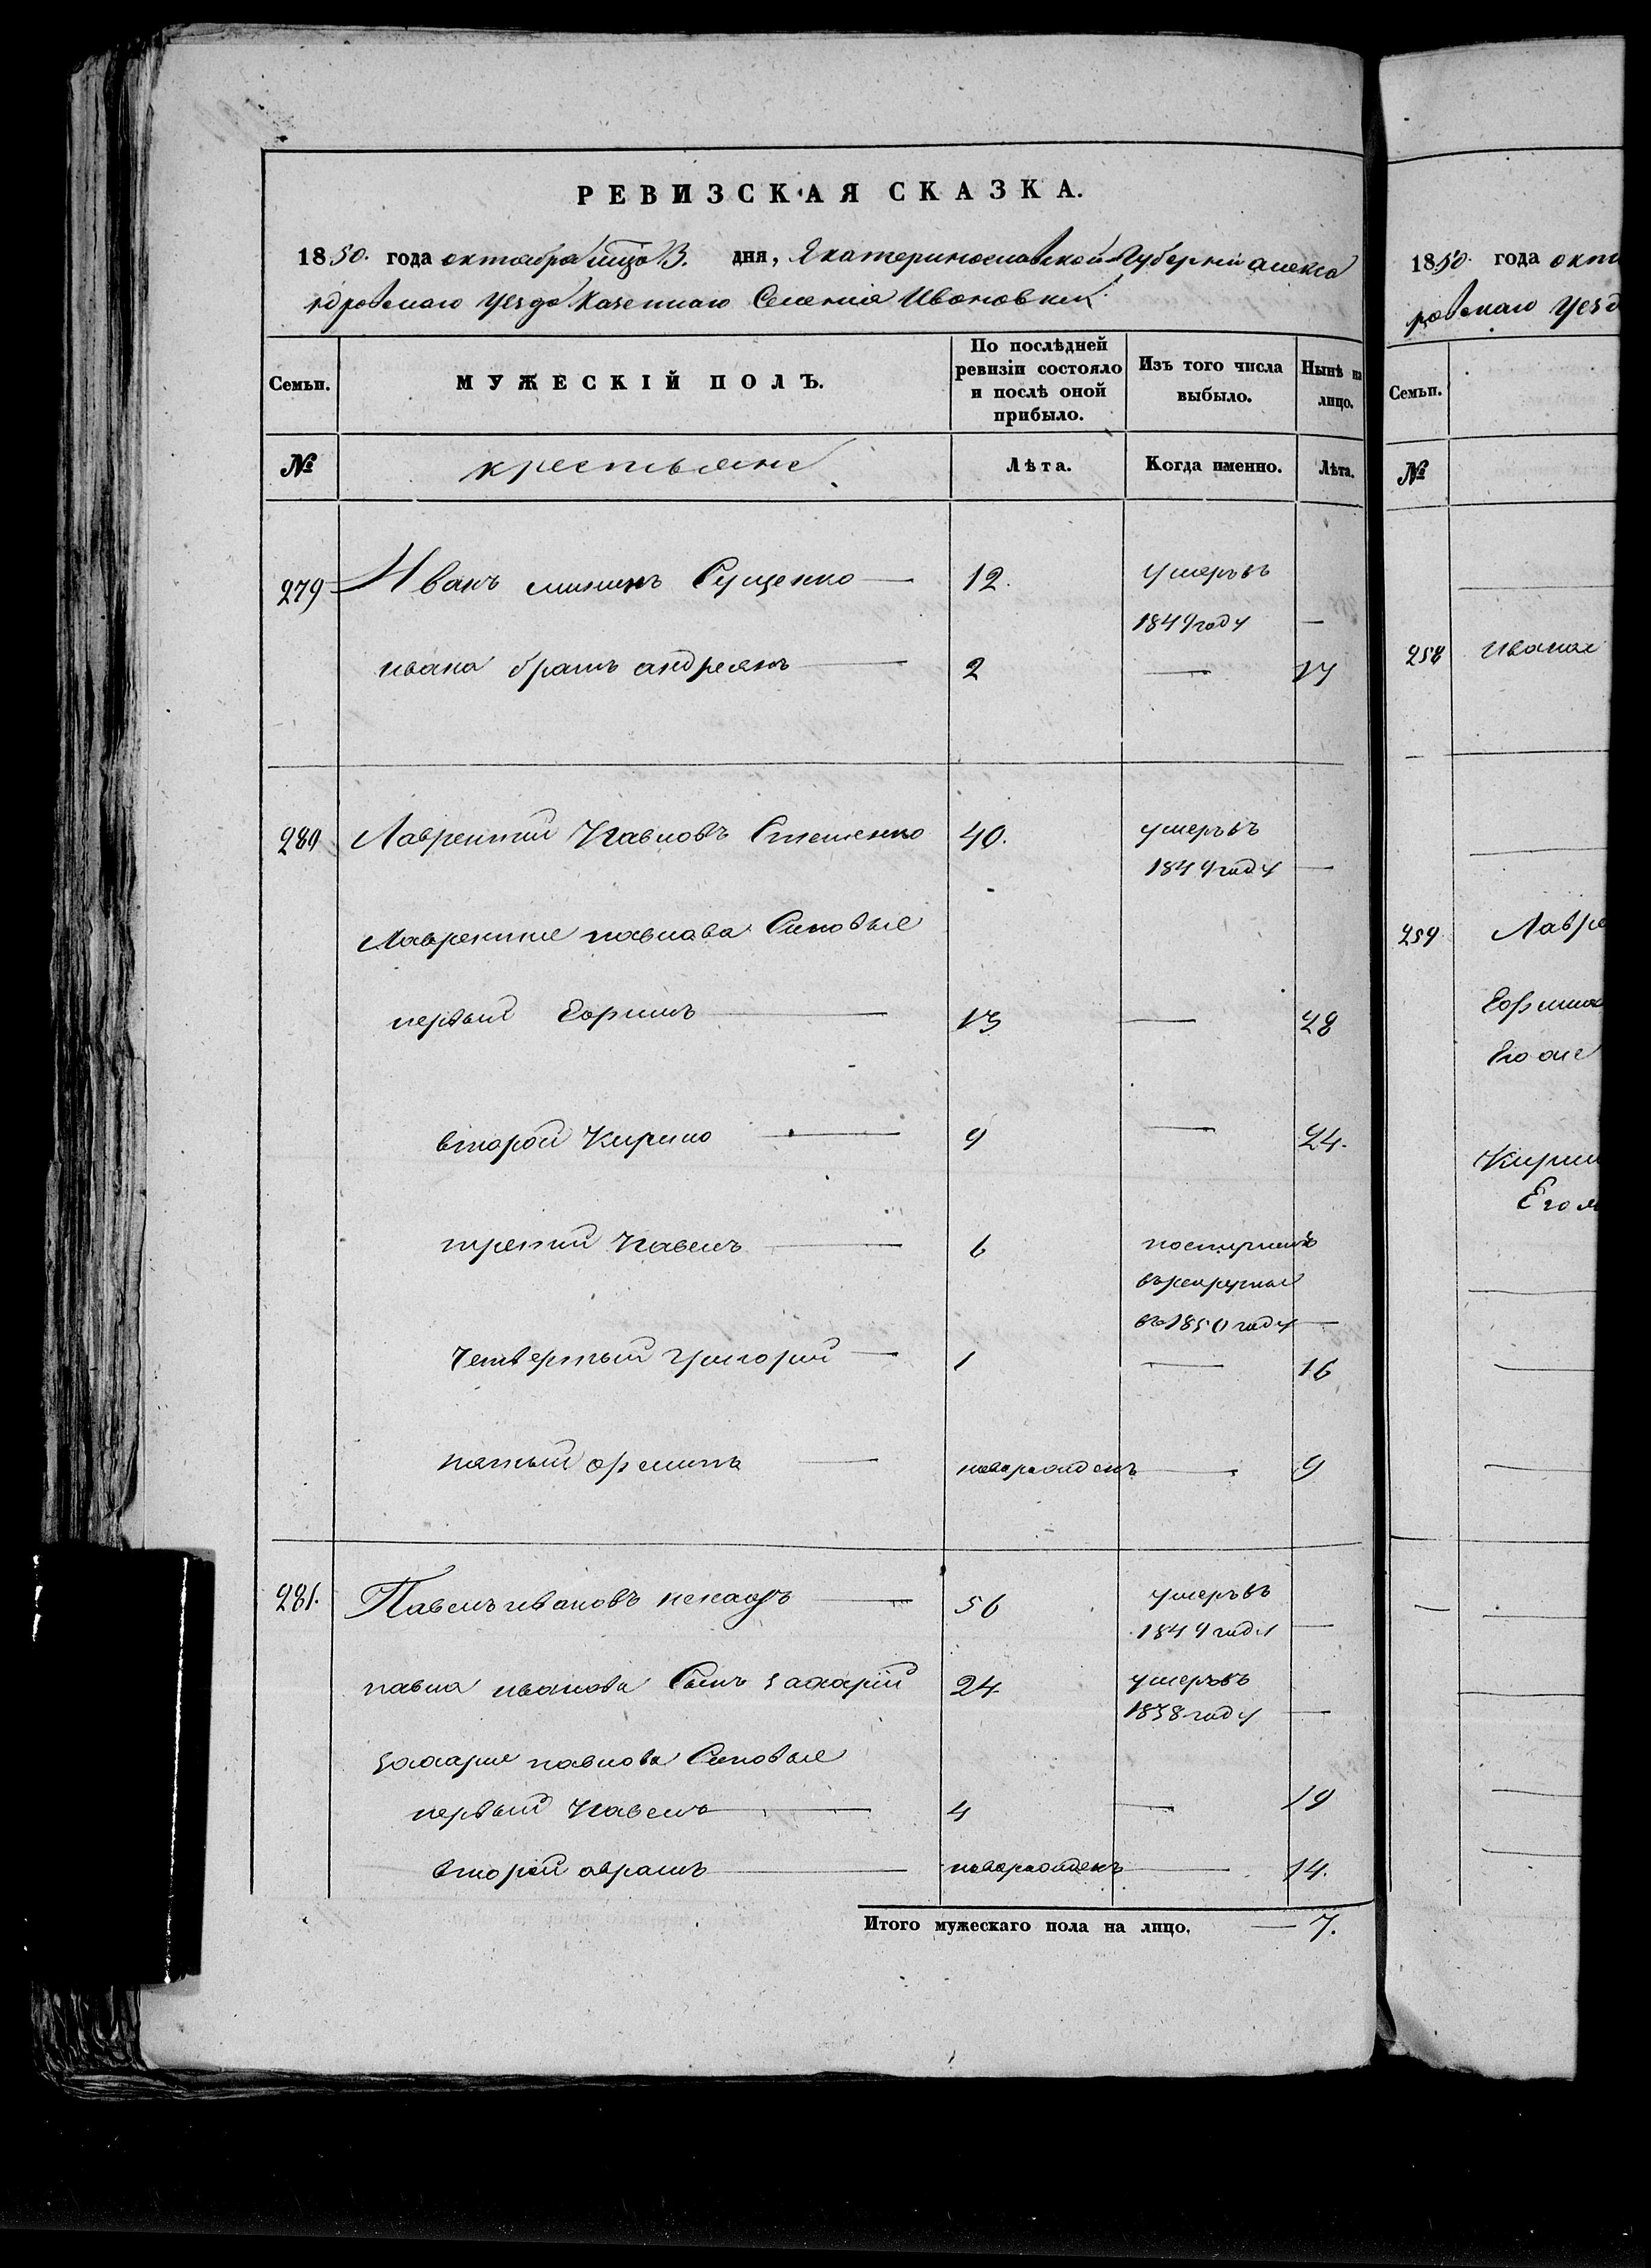 РЕВИЗСКАЯ СКАЗКА.
1850. года октября дня, Екатеринославской Губерніи алекса
ндровскаго уезда Казеннаго Селенія Ивановки.
Семьи.
МУЖЕСКІЙ ПОЛЪ.
По послѣдней ревизіи состояло и послѣ оной прибыло.
Изъ того числа выбыло.
Нынѣ на лицо.
№ крестьяне Лѣта. Когда именно. Лѣта.
279 Иванъ мининъ Сущенко — 12. умеръ въ
1849 году —
ивана братъ андреянъ — 2 — 17
280 Лаврентий Павловъ Стешенко 40. умеръ въ
1849 году —
Лаврентие павлова Сыновье
первый Ефимъ — 13 — 28
второй Кирило — 9 — 24.
третий Павелъ — 6 поступилъ
въ рекруты
въ 1850 году —
Четвертый григорий — 1 — 16
пятый — новорожденъ — 9
281. Павелъ ивановъ — 56 умеръ въ
1849 году —
павла иванова Сынъ захарій 24 умеръ въ
1838 году —
захарие павлова Сыновье
первый Павелъ — 4 — 19
второй абрамъ — новорожденъ — 14.
Итого мужескаго пола на лицо. — 7.
1850. года окт
ровскаго уезд
Семьи.
№
258 ивана
259 Лавре
Ефима
Его же
Кирил
Его